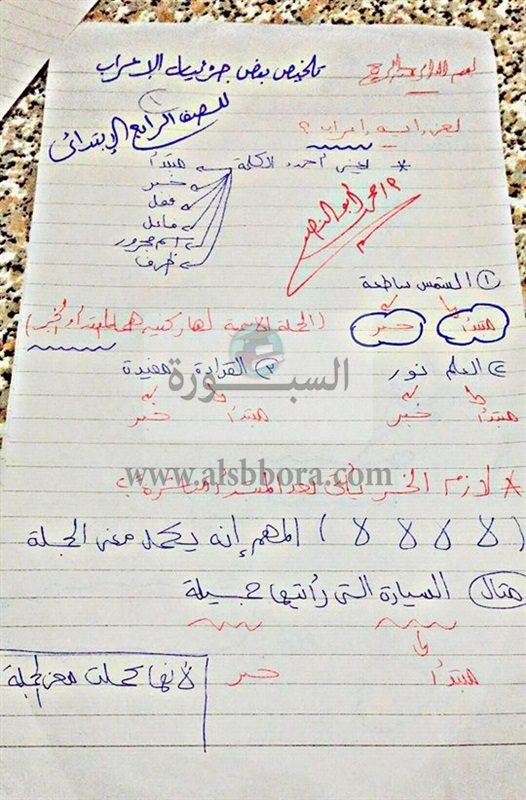 بسم الله الرحمن الرحيم
تلخيص بعض جزئيات الإعراب
للصف الرابع الابتدائى
١
يعنى إيه إعراب؟
* يعنى أحدد الكلمة
مبتدأ
خبر
فعل
فاعل
اسم مجرور
ظرف
أ/ حمد أبو النصر
① الشمس ساطعة
مبتدأ خبر
(الجملة الاسمية لها ركنين هما المبتدأ والخبر)
② العلم نور
مبتدأ خبر
③ القراءة مفيدة
مبتدأ خبر
السبورة
www.alsbbora.com
* لازم الخبر ييجى بعد المبتدأ مباشرة؟
(لا لا لا لا) المهم إنه يكمل معنى الجملة
مثال السيارة التى رأيتها جميلة
مبتدأ خبر
لأنها كملت معنى الجملة